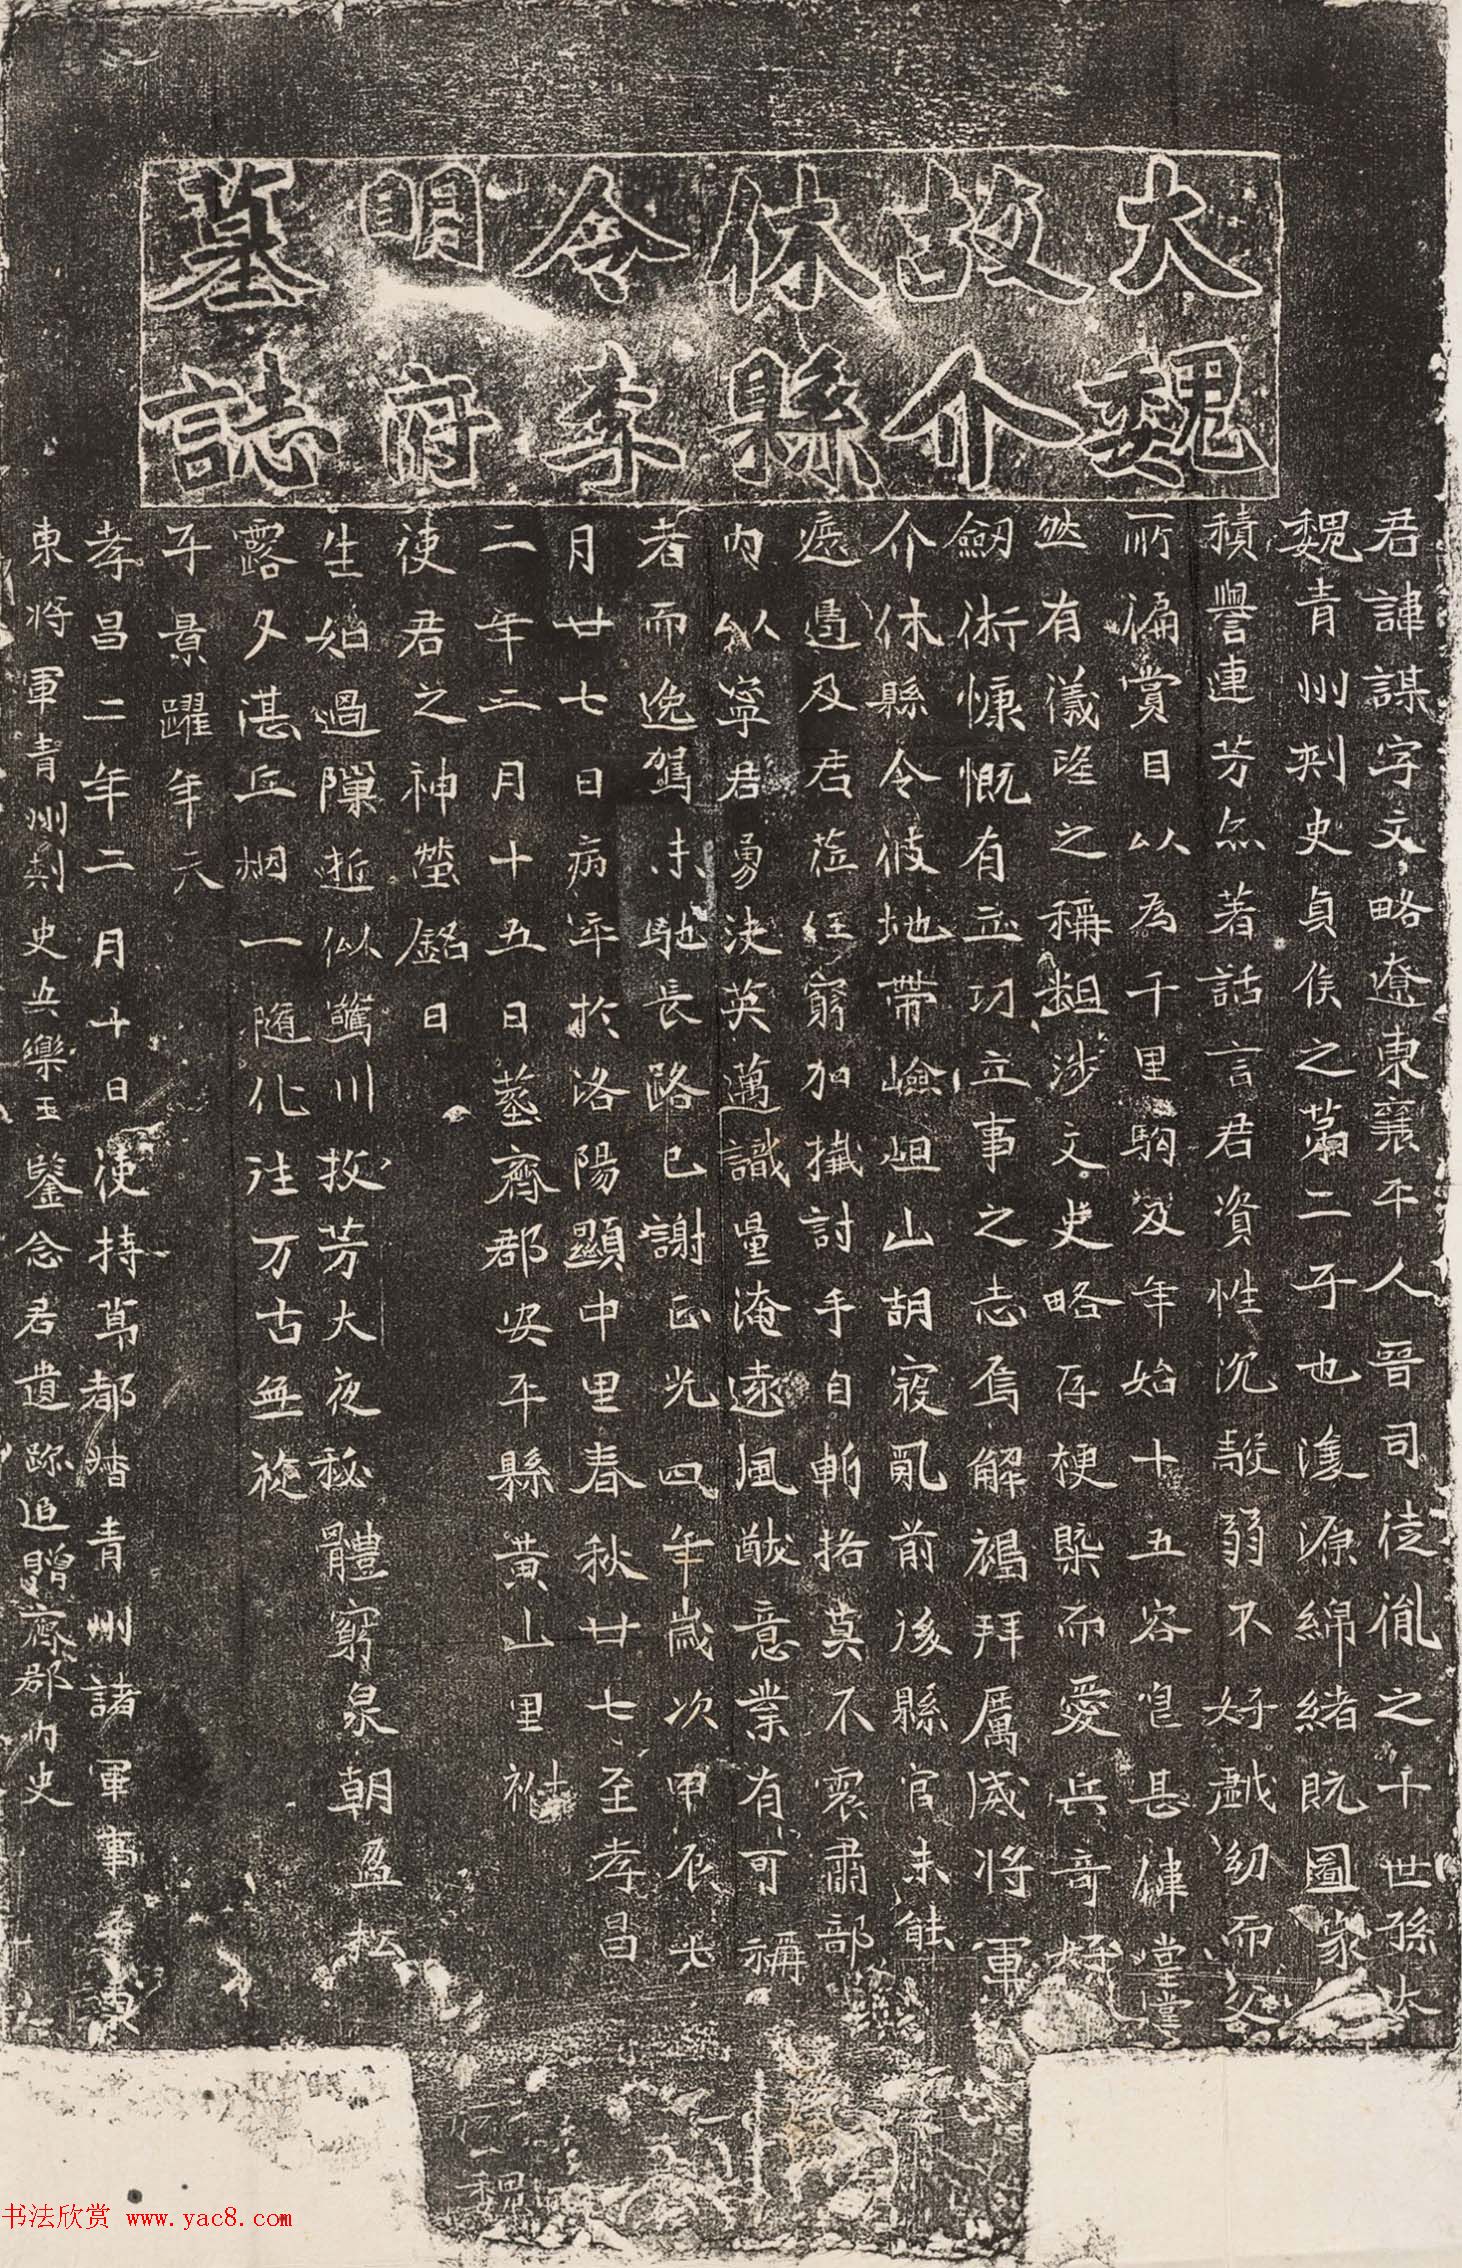 大魏
故介
休縣
令李
明府
墓誌
君諱謀字文略遼東襄平人晉司徒胤之十世孫大
魏青州刺史貞侯之第二子也浚源綿緒既圖家
積譽連芳亦著話言君資性沉駿弱不好戲幼而父
所偏賞目以為千里駒及年始十五容皃甚偉堂堂
然有儀望之稱粗涉文史略存梗槩而愛兵奇好
劔術慷慨有立功立事之志焉解褐拜厲威將軍
介休縣令彼地帶嶮岨山胡寇亂前後縣官未能
遮遏及君莅任窮加撝討手自斬挌莫不震肅部
內以寧君勇決英邁識量淹遠風猷意業有可稱
者而逸駕未馳長路已謝正光四年歲次甲辰七
月廿七日病卒於洛陽顯中里春秋廿七至孝昌
二年二月十五日葬齊郡安平縣黃山里祔
使君之神塋銘曰
生如過隟逝似驚川投芳大夜秘體窮泉朝盈松
露夕湛丘烟一随化往万古無旋
子景躍年六
孝昌二年二月十日使持節都督青州諸軍事平東
東將軍青州刾史安樂王鑒念君遺跡追贈齊郡內史
魏
书法欣赏 www.yac8.com